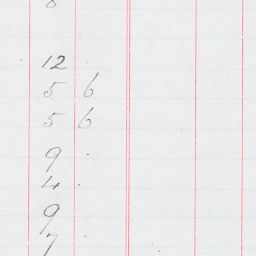 8
12 .
5 6
5 6
9 .
4 .
9
7 .